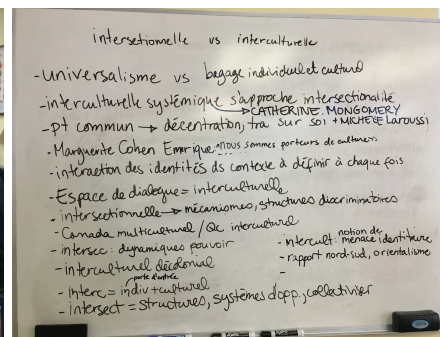 intersetionnelle vs interculturelle
- Universalisme vs bagage individuel et culturel
- interculturelle systémique s'approche intersectionalité
→ CATHERINE. MONGOMERY
- pt commun → décentration, tra sur soi + MICHELE LAROUSSI
- Marguerite Cohen Emrique: nous sommes porteurs de cultures
- interaction des identités ds contexte à définir à chaque fois
- Espace de dialogue = interculturelle
- intersectionnelle → mécanismes, structures discriminatoires
- Canada multiculturel / Qc interculturel
- intersec: dynamiques pouvoir
- interculturel décolonial
porte d'entrée
- Interc = indiv + culturel
- intersect = structures, systèmes d'opp., collectiviser
notion de
- Intercult: menace identitaire
- rapport nord-sud, orientalisme
-